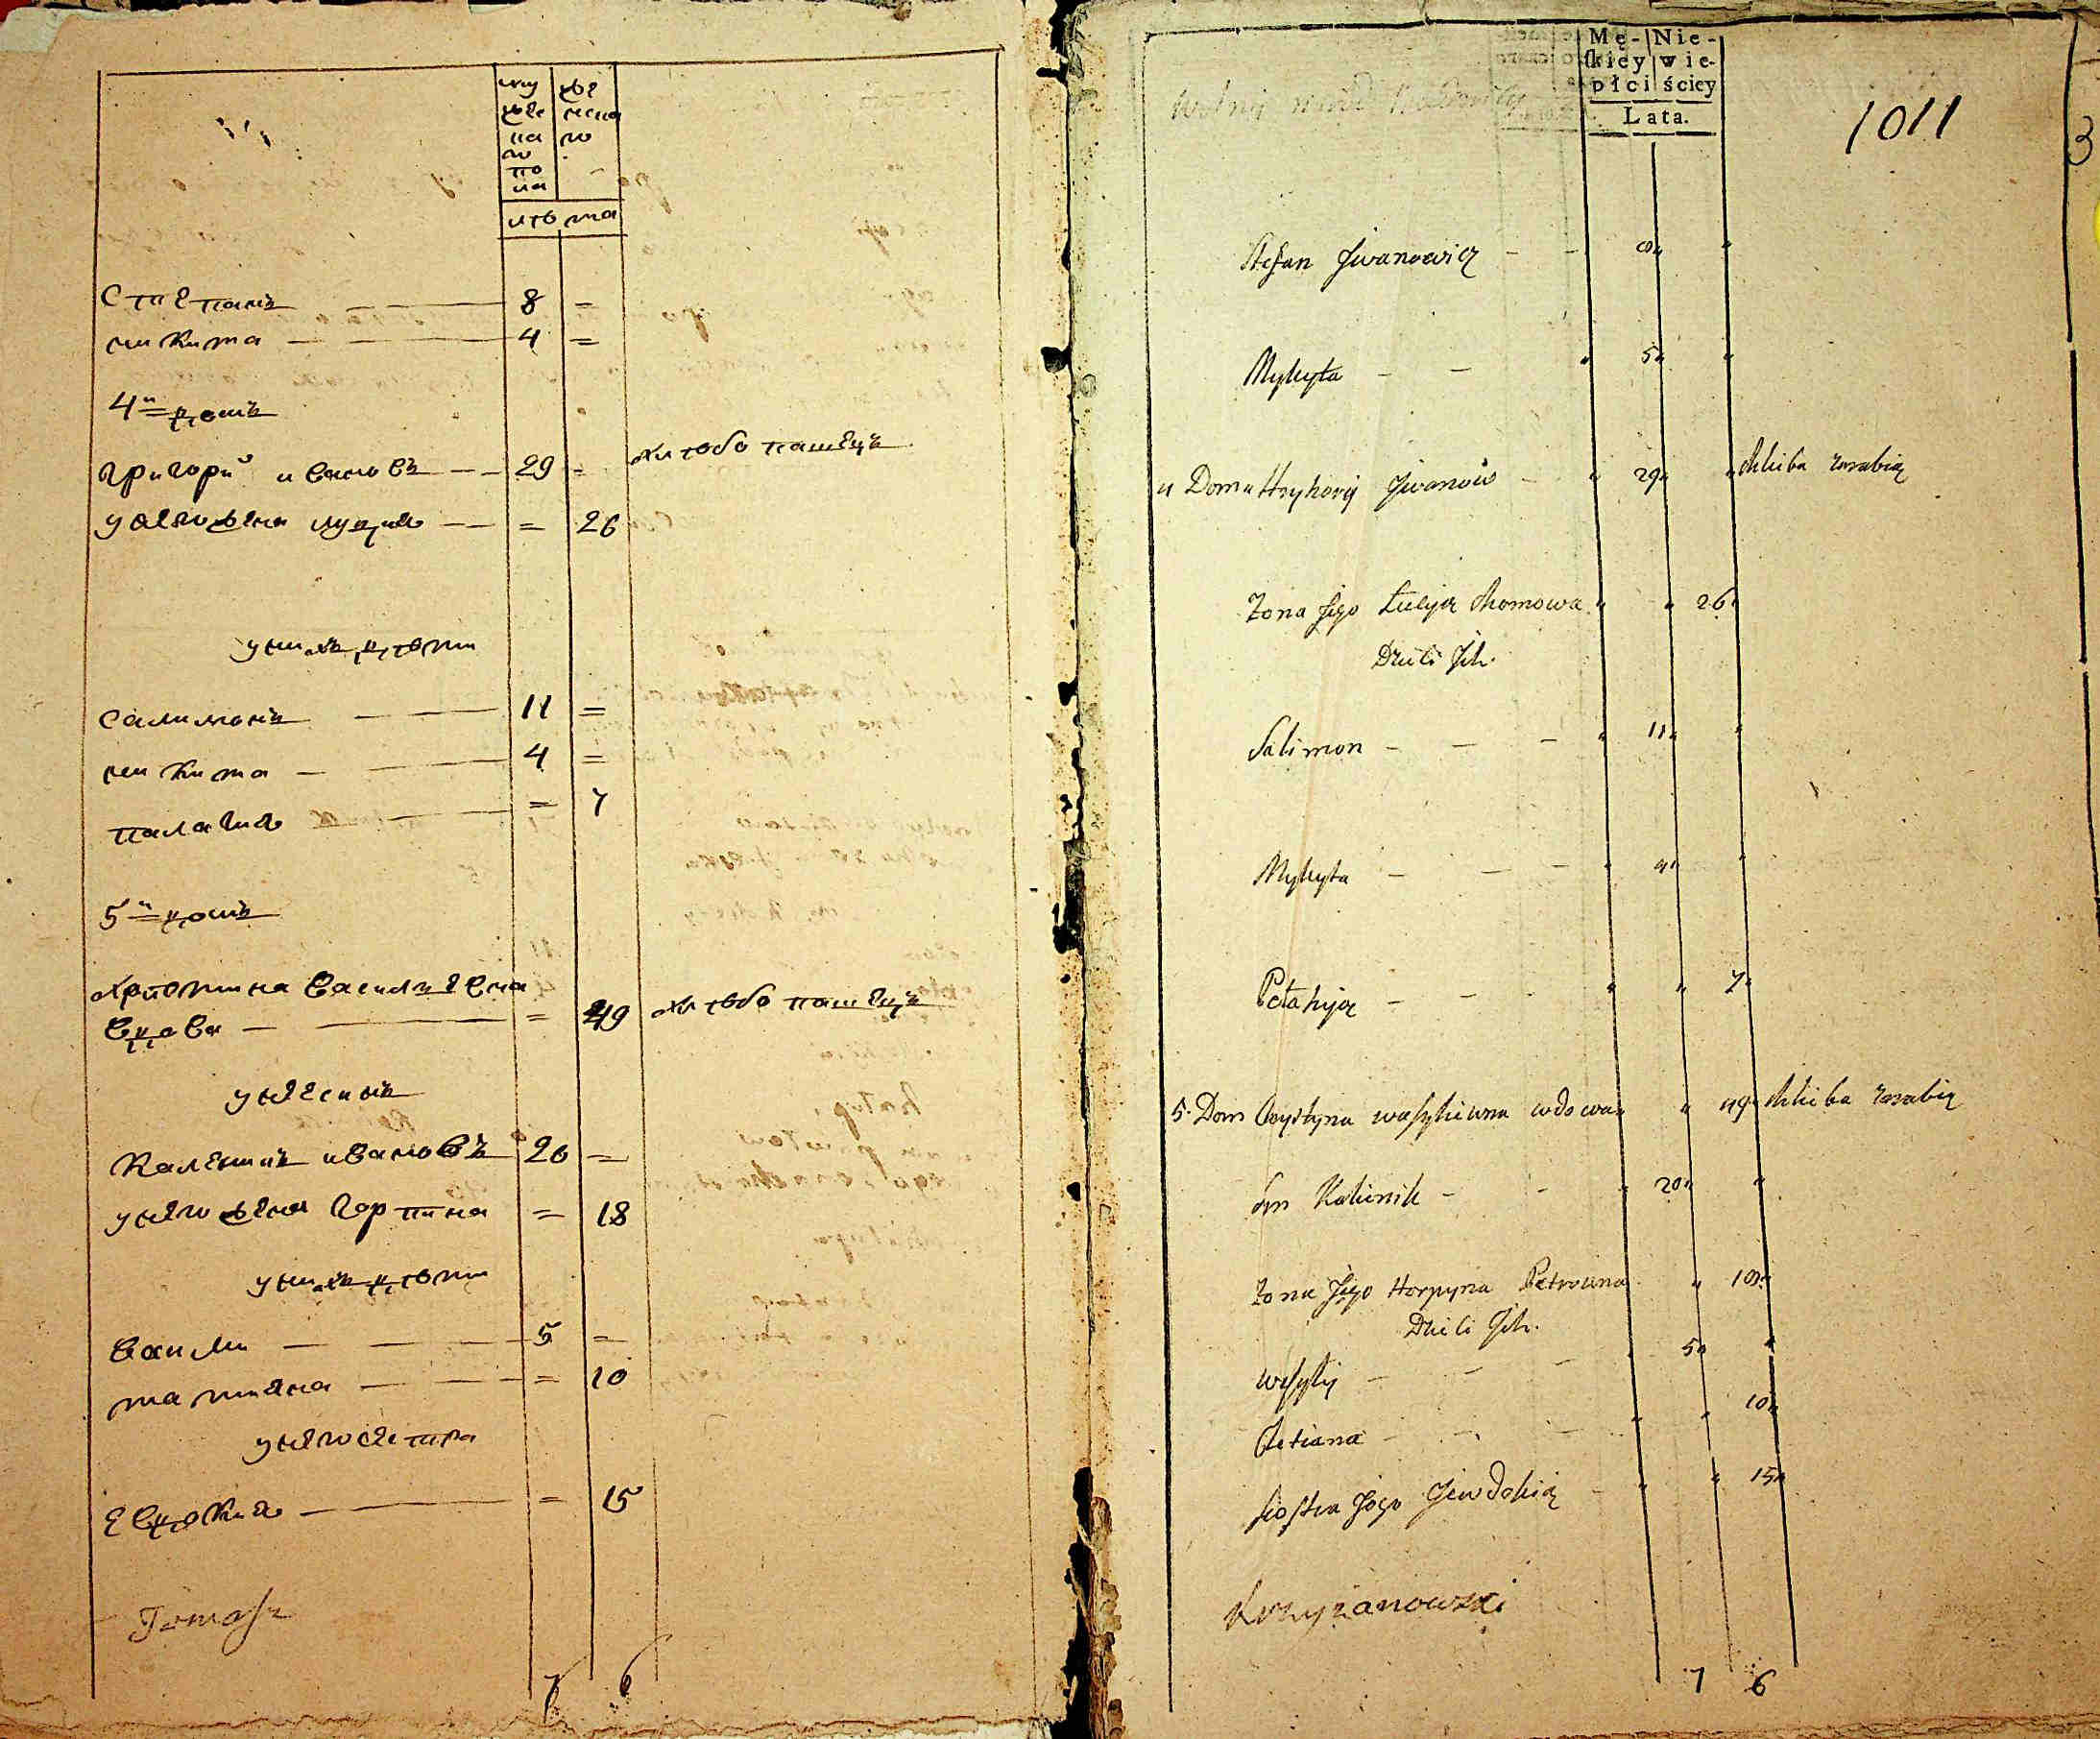 му
жес
ка
го
по
ла
же
нска
го
лѣта
Степанъ — 8 =
никита — 4 =
4й домъ
григорий ивановъ — 29 = хлѣбо пашецъ
у него жена лукия — = 26
у нихъ дѣти
салимонъ — 11 =
никита — 4 =
палагия — = 7
5й домъ
христина василиевна
вдова — = 49 хлѣбо пашецъ
у нее сынъ
калениκъ ивановъ 20 =
у него жена горпина = 18
у нихъ дѣти
васили — 5 =
татияна — = 10
у него сестра
евдокия — = 15
Tomasz
7 6
Mę-
skiey
płci
Nie-
wie-
ściey
Lata.
1011
3
Stefan Jwanowicz — — 8 "
Mykyta — — " 5 "
4 Dom Hryhory Jwanow — " 29 " chliba zarabia
Zona Jego Łucyja Chomowa " " 26
Dzieci Jch.
Salimon — — — " 11 "
Mykyta — — — " 4 "
Pełahija — — " " 7
5. Dom Crystyna wasylciwna wdowa " " 49 chliba zarabia
Syn Kalienik — — " 20 "
Zona Jego Horpyna Petrowna " 18
Dzieci Jch.
wasyly — — — " 5 "
Tetiana — — — " " 10
siostra Jego Jewdokia — " " 15
Krzyżanowski
7 6